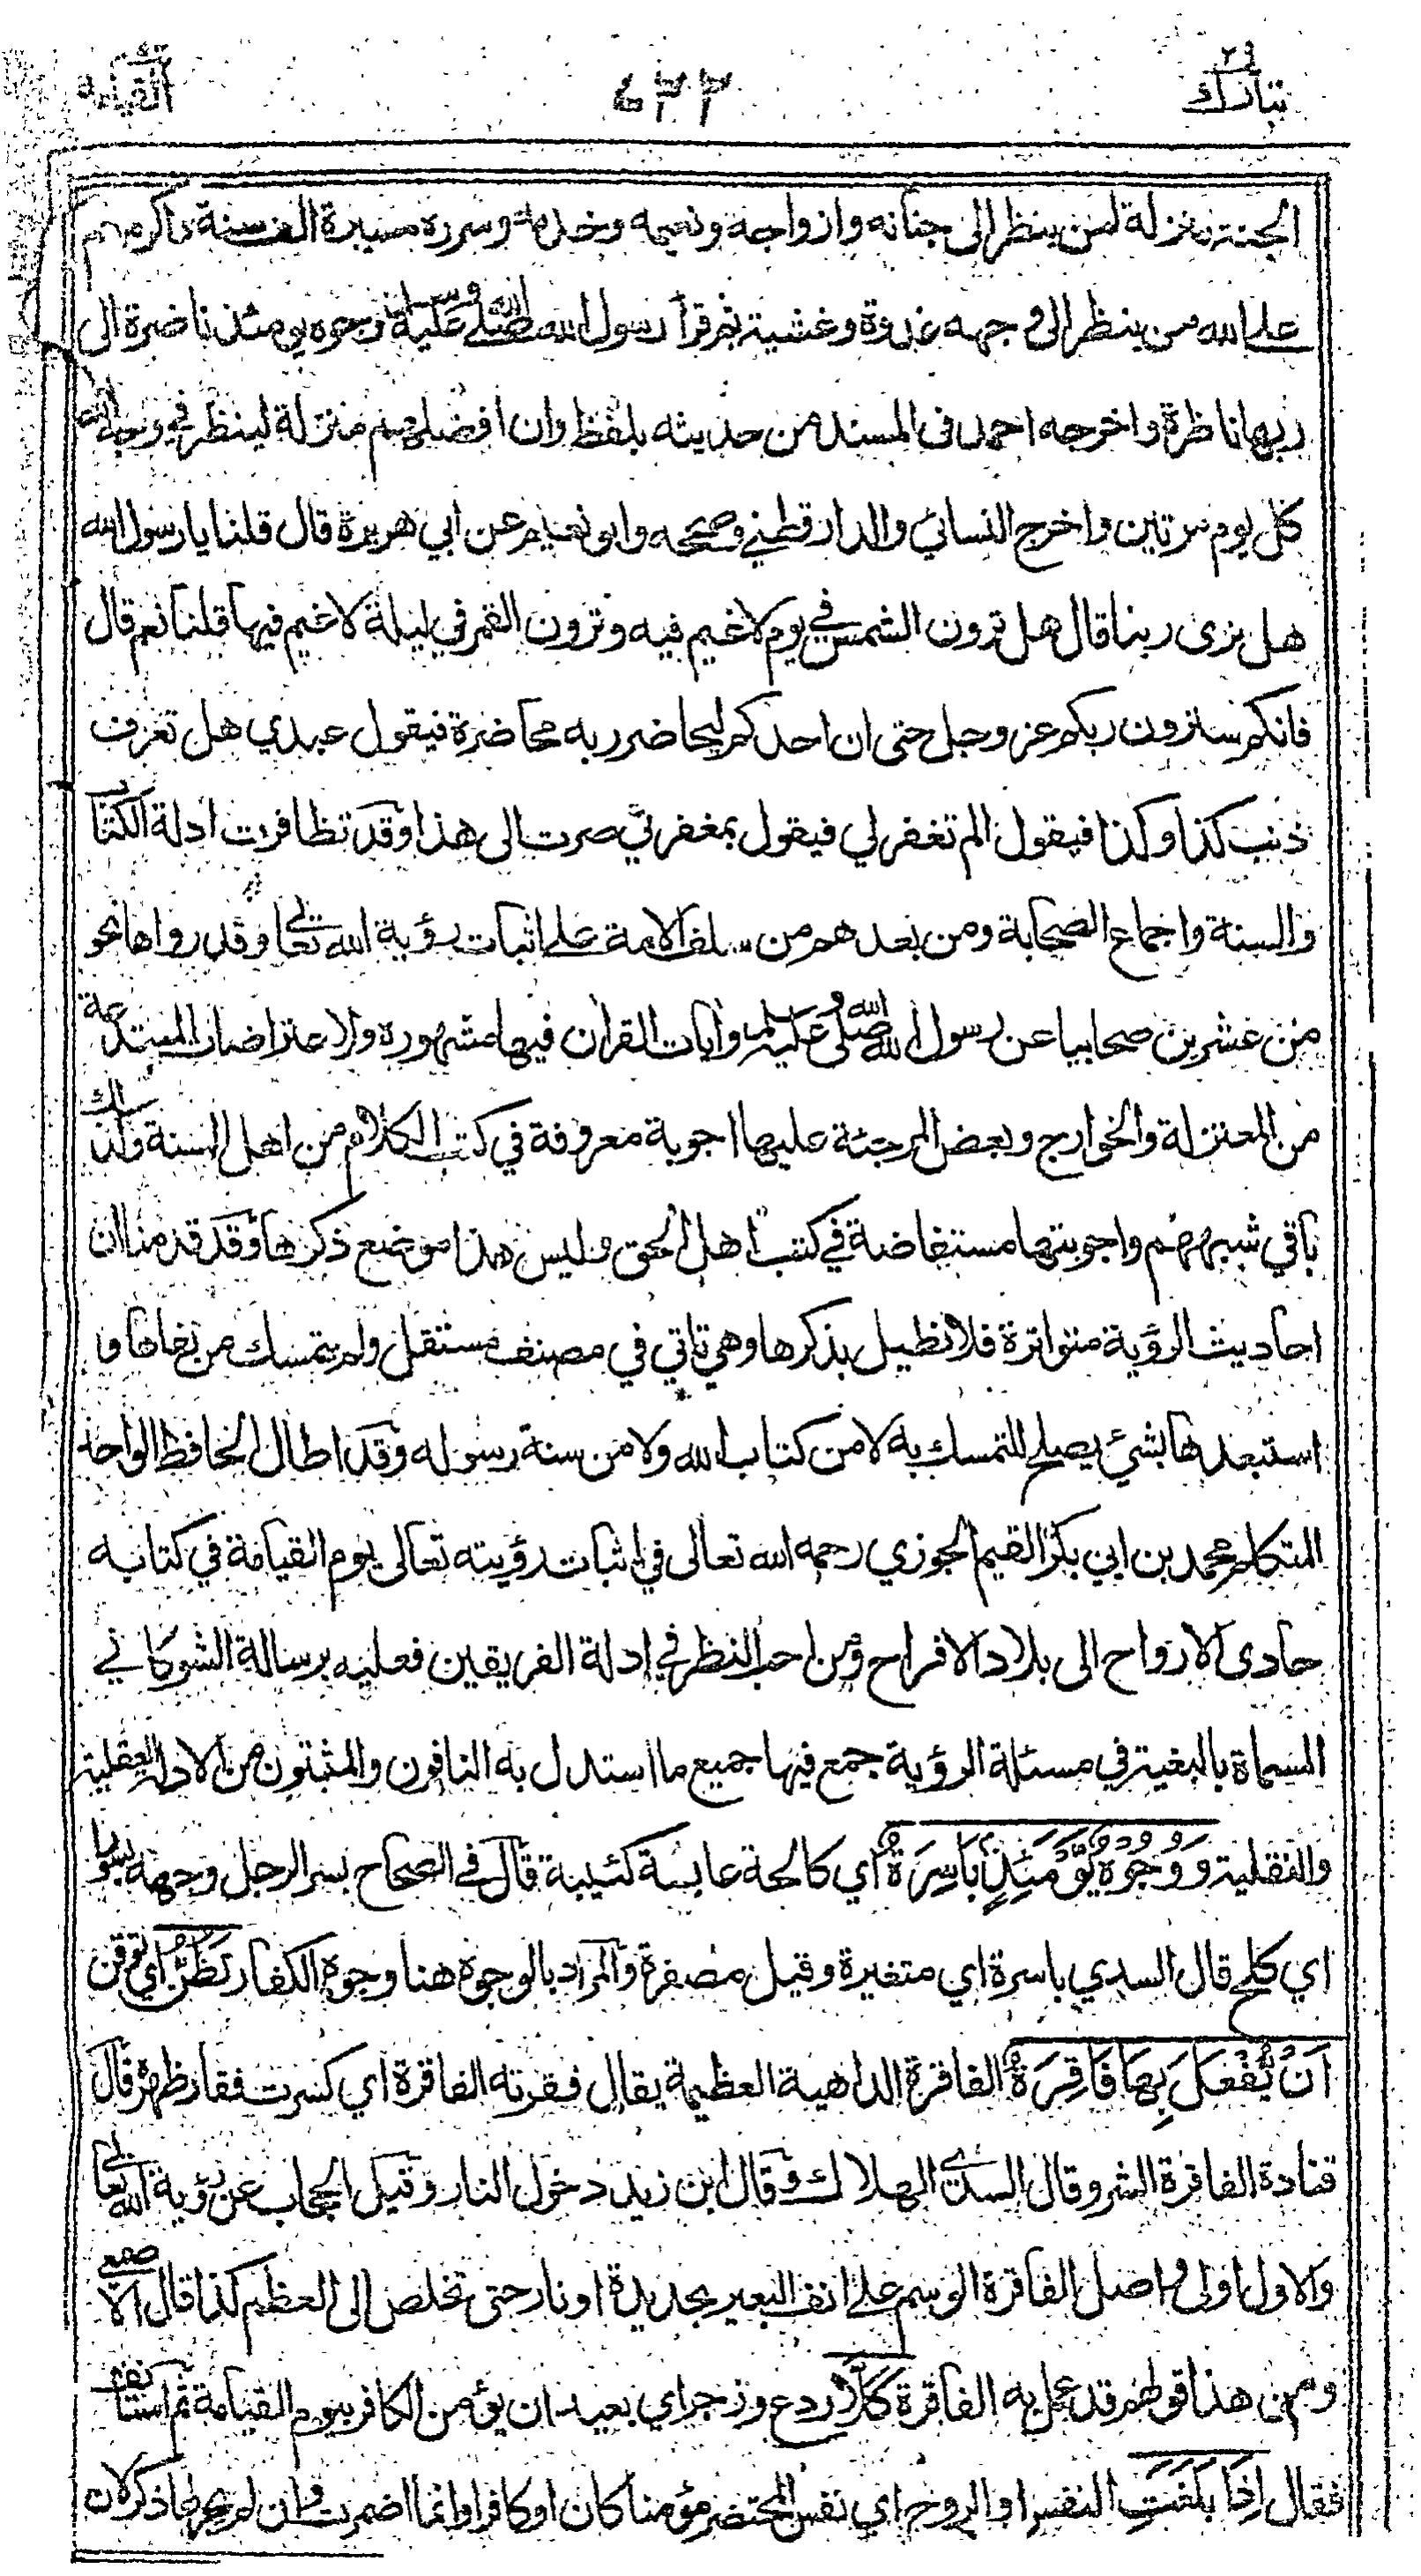 تبارك ٢٩
٤٣٣
القيامة
الجنة منزلة لمن ينظر الى جنانه وازواجه ونعيمه وخدمه وسرره مسيرة الف سنة واكرمهم
على الله من ينظر الى وجهه غدوة وعشية ثم قرأ رسول الله صلى الله عليه وسلم وجوه يومئذ ناضرة الى
ربها ناظرة واخرجه احمد في المسند من حديثه بلفظ وان افضلهم منزلة لينظر في وجه الله
كل يوم مرتين واخرج النسائي والدارقطني وصححه وابو نعيم عن ابي هريرة قال قلنا يا رسول الله
هل نرى ربنا قال هل ترون الشمس في يوم لا غيم فيه وترون القمر في ليلة لا غيم فيها قلنا نعم قال
فانكم سترون ربكم عز وجل حتى ان احدكم ليحاضر ربه محاضرة فيقول عبدي هل تعرف
ذنب كذا وكذا فيقول الم تغفر لي فيقول بمغفرتي صرت الى هذا وقد تظافرت ادلة الكتاب
والسنة واجماع الصحابة ومن بعدهم من سلف الامة على اثبات رؤية الله تعالى وقد رواها نحو
من عشرين صحابيا عن رسول الله صلى الله عليه وسلم وايات القرأن فيها مشهورة ولاعتراضات المبتدعة
من المعتزلة والخوارج وبعض المرجئة عليها اجوبة معروفة في كتب الكلام من اهل السنة وكذلك
باقي شبههم واجوبتها مستفاضة في كتب اهل الحق وليس هذا موضع ذكرها وقد قدمنا ان
احاديث الرؤية متواترة فلا نطيل بذكرها وهي تاتي في مصنف مستقل ولم يتمسك من نفاها و
استبعدها بشيء يصلح للتمسك به لا من كتاب الله ولا من سنة رسوله وقد اطال الحافظ الواحد
المتكلم محمد بن ابي بكر القيم الجوزي رحمه الله تعالى في اثبات رؤيته تعالى يوم القيامة في كتابه
حادى الارواح الى بلاد الافراح ومن احب النظر في ادلة الفريقين فعليه برسالة الشوكاني
المسماة بالبغية في مسئلة الرؤية جمع فيها جميع ما استدل به النافون والمثبتون من الادلة العقلية
والنقلية وَوُجُوْهٌ يَّوْمَئِذٍ بَاسِرَةٌ اي كالحة عابسة كئيبة قال في الصحاح بسر الرجل وجهه بسورا
اي كلح قال السدي باسرة اي متغيرة وقيل مصفرة والمراد بالوجوه هنا وجوه الكفار تَظُنُّ اي توقن
اَنْ يُّفْعَلَ بِهَا فَاقِرَةٌ الفاقرة الداهية العظيمة يقال فقرته الفاقرة اي كسرت فقار ظهره قال
قتادة الفاقرة الشر وقال السدي الهلاك وقال ابن زيد دخول النار وقيل الحجاب عن رؤية الله تعالى
والاول اولى واصل الفاقرة الوسم على انف البعير بحديدة او نار حتى تخلص الى العظم كذا قال الاصمعي
ومن هذا قولهم قد عمل به الفاقرة كَلَّا ردع وزجر اي بعيد ان يؤمن الكافر بيوم القيامة ثم استأنف
فقال اِذَا بَلَغَتِ النفس او الروح اي نفس المحتضر مؤمنا كان او كافرا وانما اضمرت وان لم يجر لها ذكر لان